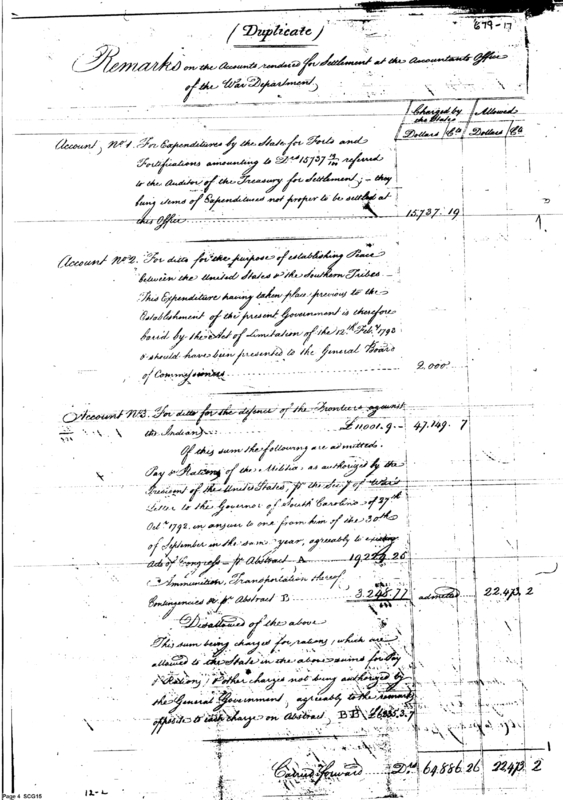 (Duplicate)
679-17
Remarks on the Accounts rendered for Settlement at the Accountants Office
of the War Department,
Charged by the States
Allowed
Dollars Cts Dollars Cts
Account, No 1. For Expenditures by the State for Forts and
Fortifications amounting to Drs 15737 19/100 referred
to the Auditor of the Treasury for Settlement; - they
being items of Expenditures not proper to be settled at
this Office 15.737. 19
Account No 2. For ditto for the purpose of establishing Peace
between the United States & the Southern Tribes
This Expenditure having taken place previous to the
Establishment of the present Government is therefore
barred by the Act of Limitation of the 12th Feby 1793
& should have been presented to the General Board
of Commissioners 2.000
Account No 3. For ditto for the defence of the Frontiers against
the Indians £11001.9 - 47.149. 7
Of this sum the following are admitted.
Pay & Rations of the Militia as authorized by the
President of the United States, pr the Secy of War's
Letter to the Governor of South Carolina of 27th
Octr 1792, in answer to one from him of the 30th
of September in the same year, agreeably to existing
Acts of Congress pr Abstract A 19,229.26
Ammunition, Transportation thereof,
Contingencies &c pr Abstract B 3.248.77 admitted 22.473 2
Disallowed of the above
This sum being charges for rations, which are
allowed to the State in the above sums for Pay
& Rations, & other charges not being authorized by
the General Government, agreeably to the remarks
opposite to each charge on Abstract, BB
Carried forward Drs 64.886.26 22.473 2
12-2
Page 4 SCG15